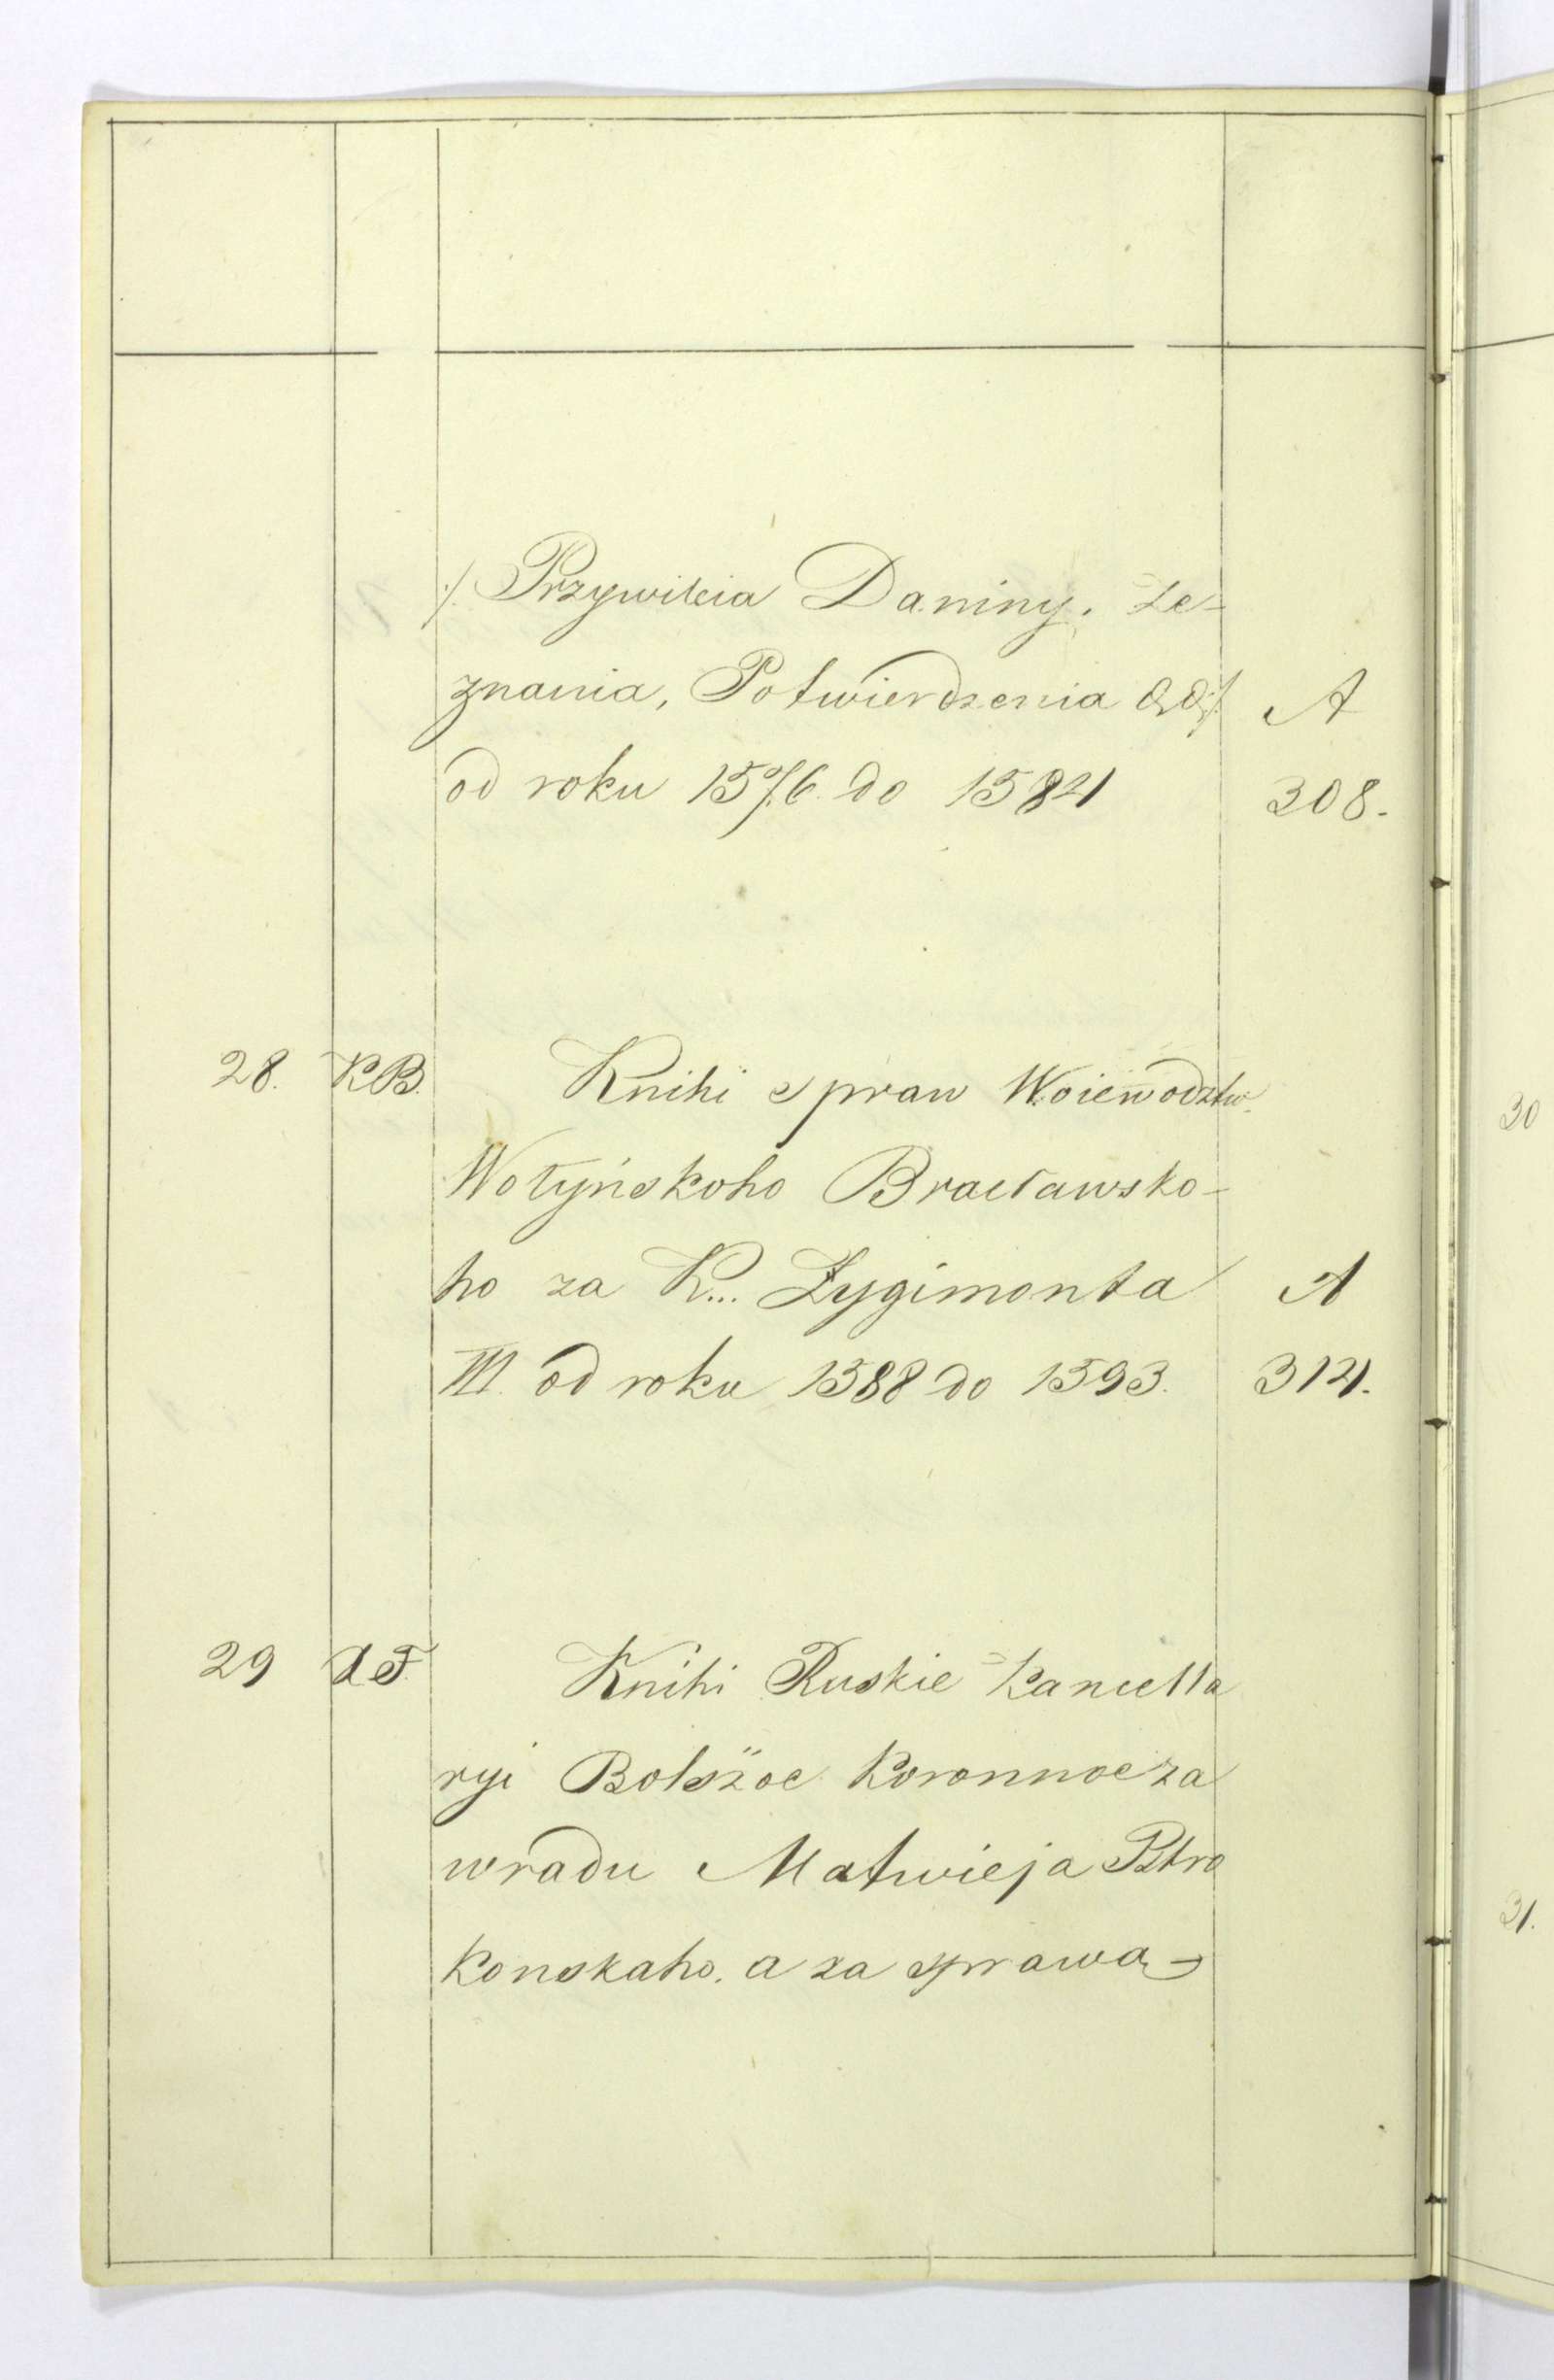 :/ Przywileia Daniny. Ze-
znania, Potwierdzenia &&/:
A
od roku 1576 do 1584
308.
28. KB. Knihi spraw Woiewodztw.
Wołyńskoho Bracławsko-
ho za K... Zygimonta
A
III. od roku 1588 do 1593.
314.
29 LF. Knihi Ruskie Kancella
ryi Bolszoe Koronnoe za
wradu Matwieja Pstro
Konskaho. a za sprawą
30
31.